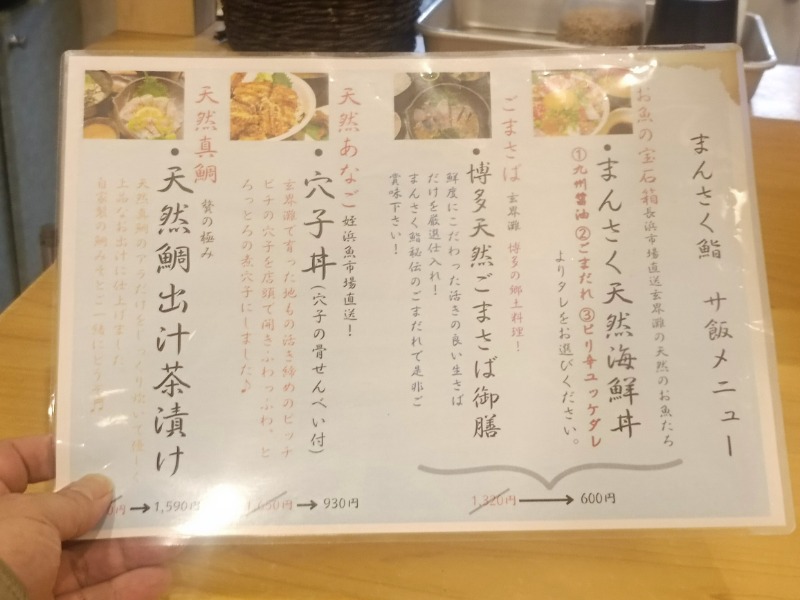 まんさく鮨 サ飯メニュー
お魚の宝石箱 長浜市場直送玄界灘の天然のお魚たち
・まんさく天然海鮮丼
①九州醤油 ②ごまだれ ③ピリ辛ユッケダレ
よりタレをお選びください。
ごまさば 玄界灘 博多の郷土料理！
・博多天然ごまさば御膳
鮮度にこだわった活きの良い生さば
だけを厳選仕入れ！
まんさく鮨秘伝のごまだれで是非ご
賞味下さい！
1,320円→600円
天然あなご 姪浜魚市場直送！
・穴子丼(穴子の骨せんべい付)
玄界灘で育った地もの活き締めのピッチ
ピチの穴子を店頭で開きふわっふわ、と
ろっとろの煮穴子にしました♪
1,650円→930円
天然真鯛 贅の極み
・天然鯛出汁茶漬け
天然真鯛のアラだけをじっくり炊いて優しく
上品なお出汁に仕上げました
自家製の鯛みそとご一緒にどうぞ♪
円→1,590円